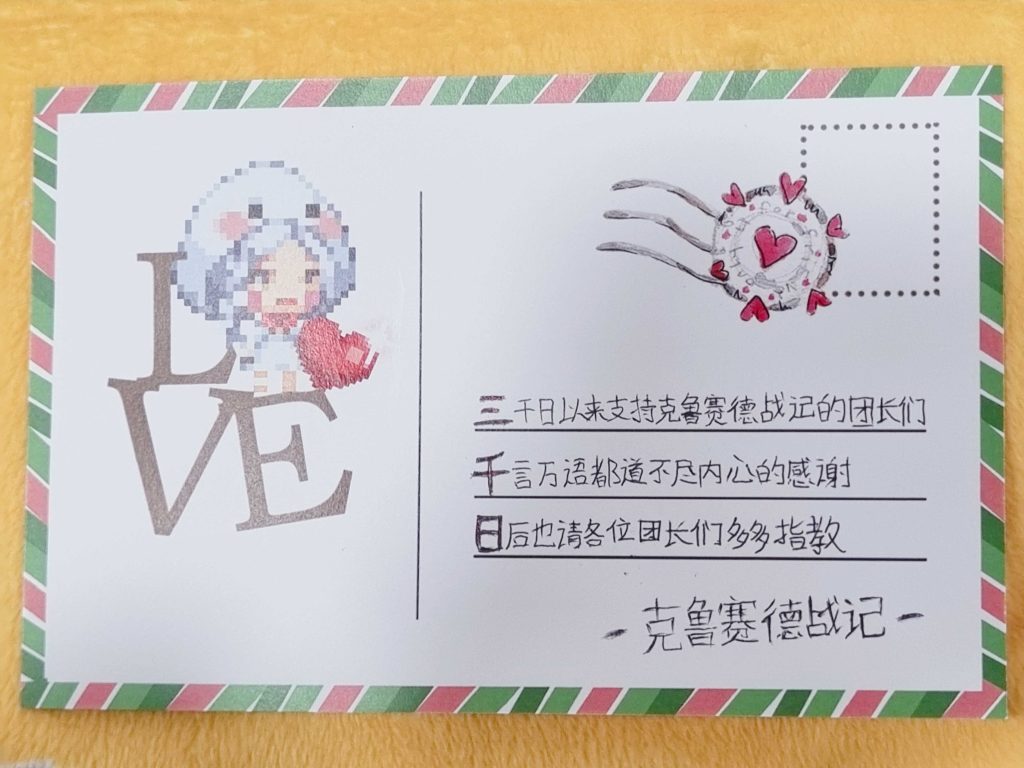 LOVE
三千日以来支持克鲁赛德战记的团长们
千言万语都道不尽内心的感谢
日后也请各位团长们多多指教
- 克鲁赛德战记 -